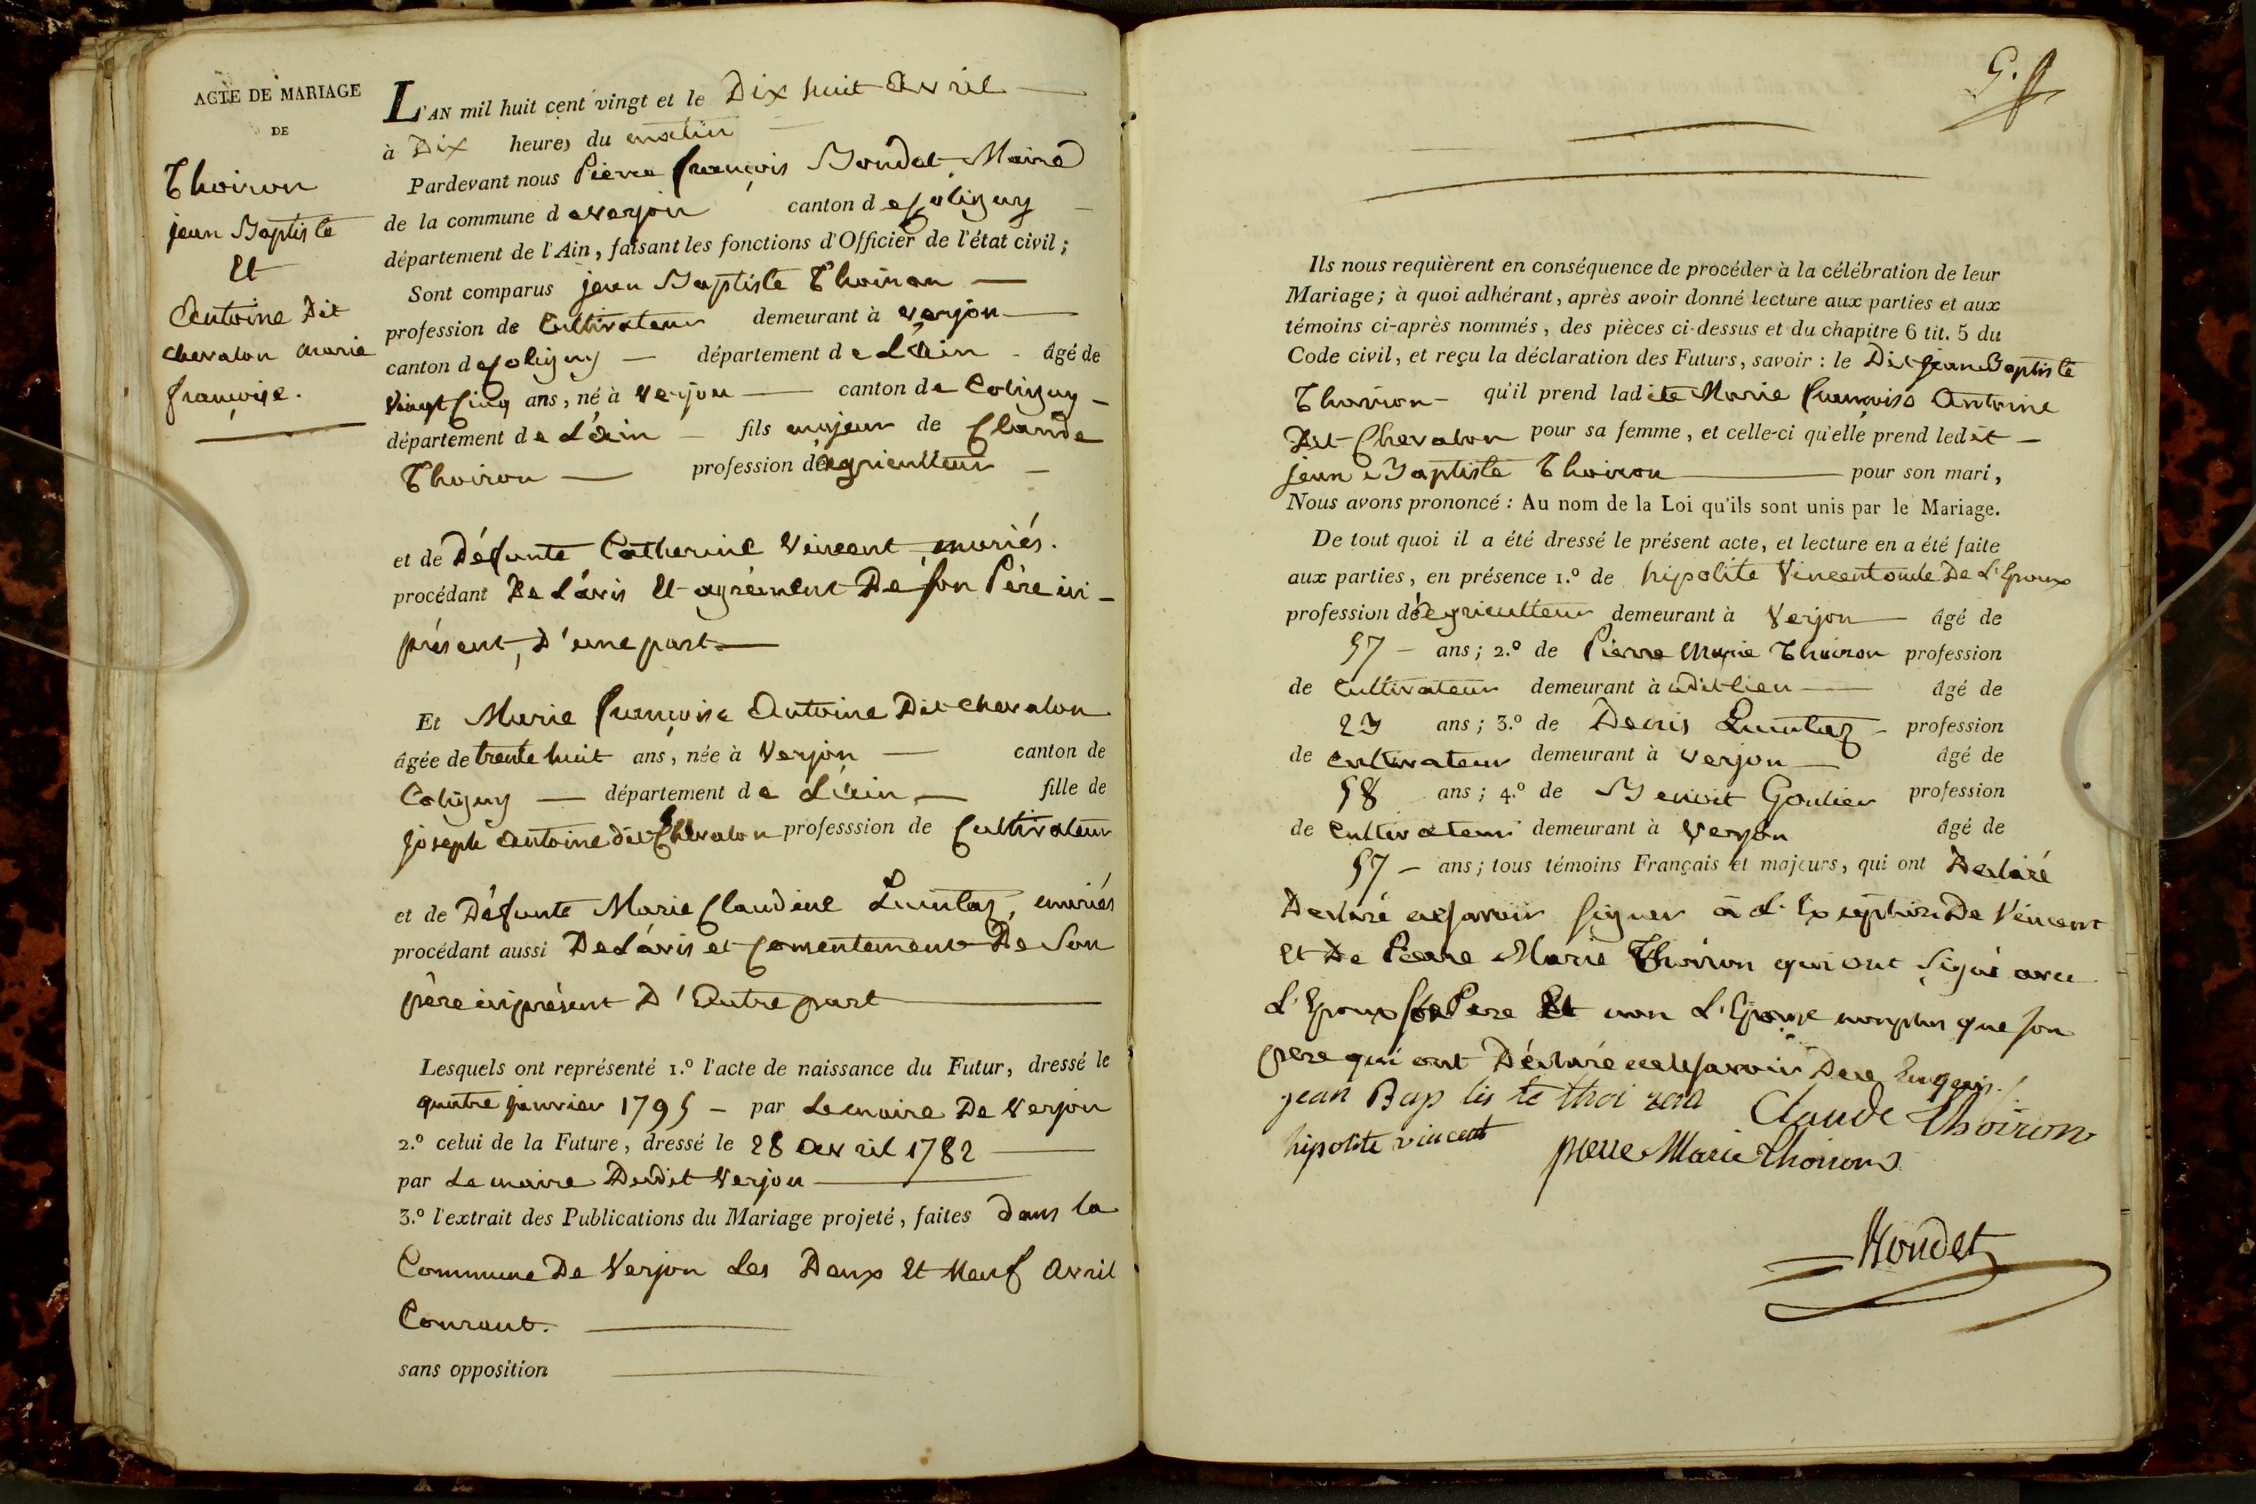 ACTE DE MARIAGE
DE
Thoiron
jean Baptiste
Et
Antoine Dit
chevalon marie
françoise.
L'AN mil huit cent vingt et le Dix huit avril
à Dix heures du matin
Pardevant nous Pierre françois Mondet Maire
de la commune de verjon canton de Coligny
département de l'Ain, faisant les fonctions d'Officier de l'état civil ;
Sont comparus jean Baptiste Thoiron
profession de Cultivateur demeurant à verjon
canton de Coligny département de L'ain âgé de
vingt Cinq ans, né à Verjon canton de Coligny
département de L'ain fils majeur de Claude
Thoiron profession d'agriculteur
et de Défunte Catherine Vincent mariés.
procédant De L'avis Et agrément De son Père ici
présent, D'une part
Et Marie françoise Antoine Dit chevalon
âgée de trente huit ans, née à Verjon canton de
Coligny département de L'ain fille de
joseph antoine dit Chevalon professsion de Cultivateur
et de Défunte Marie Claudine Quintaz, mariés
procédant aussi De L'avis et Consentement De Son
père ici présent D'Autre part
Lesquels ont représenté 1.º l'acte de naissance du Futur, dressé le
quatre janvier 1795 par Le maire De Verjon
2.º celui de la Future, dressé le 28 avril 1782
par Le maire Dudit Verjon
3.º l'extrait des Publications du Mariage projeté, faites dans la
Commune De Verjon Les Deux Et Neuf Avril
Courant.
sans opposition
Ils nous requièrent en conséquence de procéder à la célébration de leur
Mariage ; à quoi adhérant, après avoir donné lecture aux parties et aux
témoins ci-après nommés, des pièces ci-dessus et du chapitre 6 tit. 5 du
Code civil, et reçu la déclaration des Futurs, savoir : le Dit jean Baptiste
Thoiron qu'il prend ladite Marie françoise Antoine
Dit Chevalon pour sa femme, et celle-ci qu'elle prend ledit
jean Baptiste Thoiron pour son mari,
Nous avons prononcé : Au nom de la Loi qu'ils sont unis par le Mariage.
De tout quoi il a été dressé le présent acte, et lecture en a été faite
aux parties, en présence 1.º de hipolite Vincent oncle De L'Epoux
profession d'agriculteur demeurant à Verjon âgé de
57 ans ; 2.º de Pierre Marie Thoiron profession
de Cultivateur demeurant à udit lieu âgé de
23 ans ; 3.º de Denis Quintaz profession
de cultivateur demeurant à verjon âgé de
58 ans ; 4.º de Benoit Goulier profession
de Cultivateur demeurant à Verjon âgé de
57 ans ; tous témoins Français et majeurs, qui ont Declaré
Declaré ne savoir signer à L'Exception De Vincent
Et De Pierre Marie Thoiron qui ont Signé avec
L'Epoux Son Pere Et non L'Epouse non plus que son
pere qui ont Déclaré ne le savoir De ce Enquis.
jean Bap tis te thoi ron Claude Thoiron
hipolite vincent pierre Marie Thoiron
Mondet